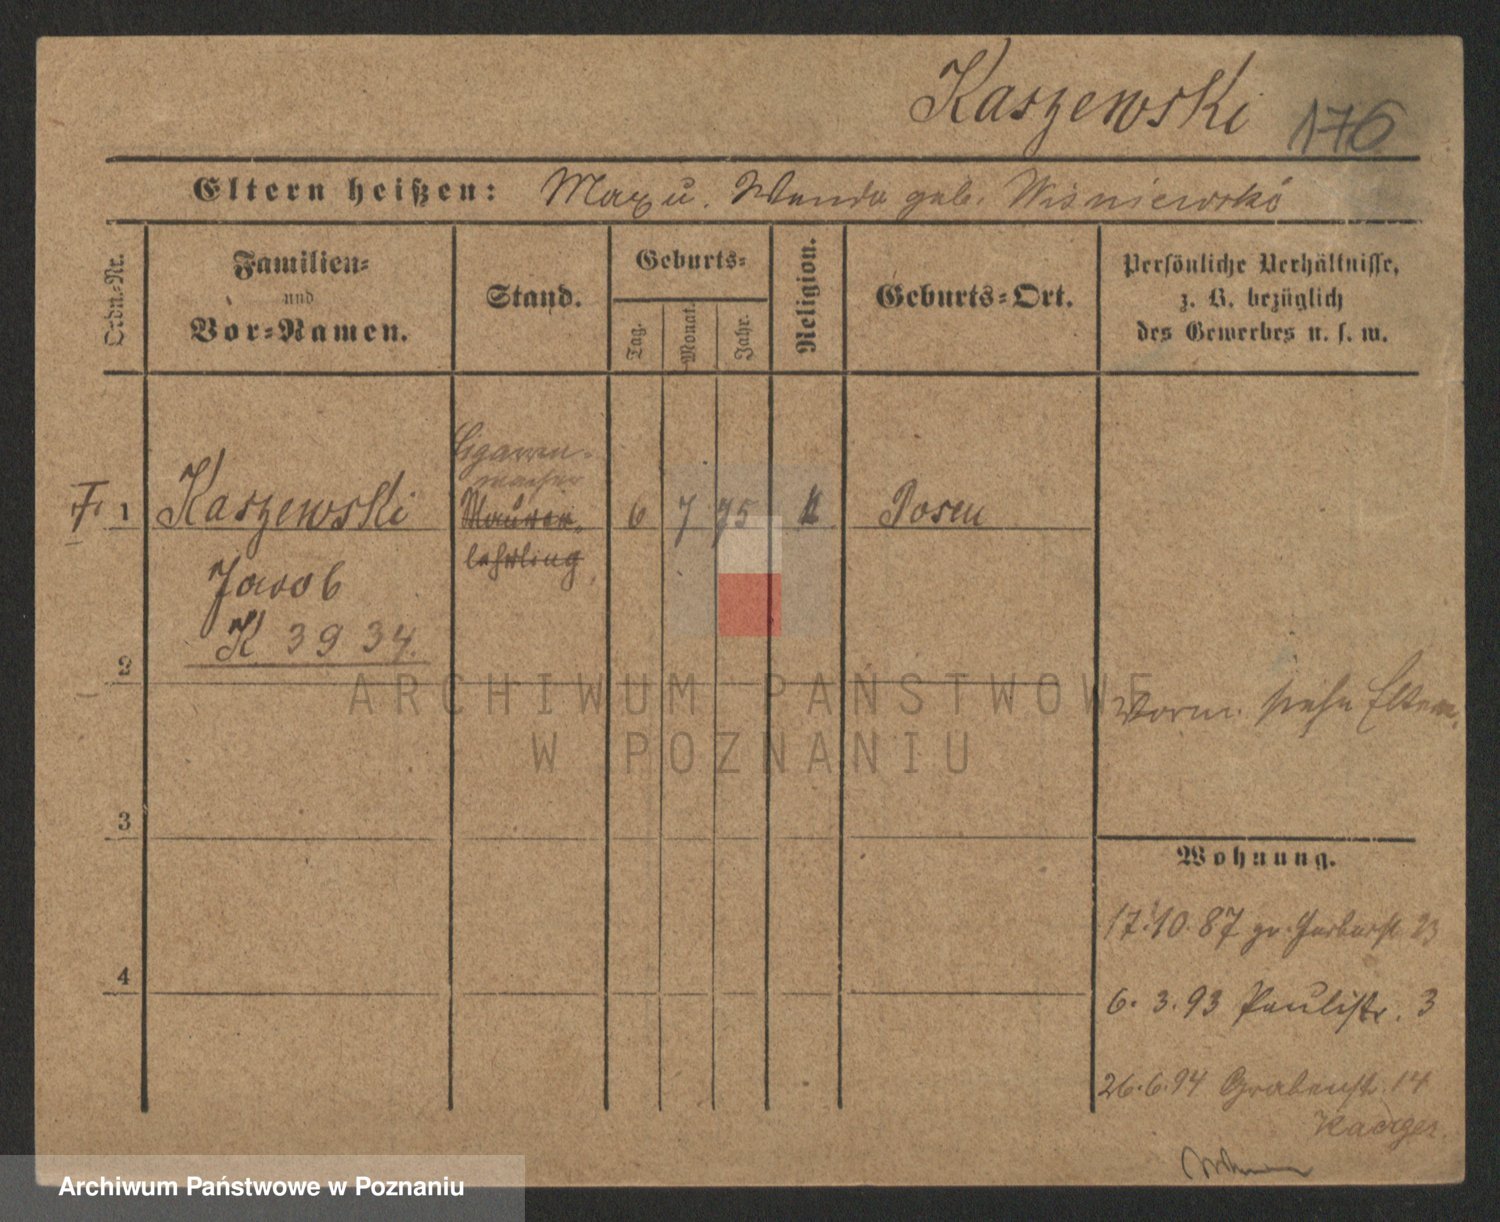 Kaszewski 176
Eltern heißen: Max u. Wanda geb. Wiśniewska
Ordn.-Nr.
Familien-
und
Vor-Namen.
Stand.
Geburts-
Tag.
Monat.
Jahr.
Religion.
Geburts-Ort.
Persönliche Verhältnisse,
z. B. bezüglich
des Gewerbes u. s. w.
Cigarren-
macher
1 Kaszewski Maurer- 6 7 75 k Posen
lehrling
Jacob
K 3934.
2
ARCHIWUM PAŃSTWOWE
W POZNANIU
Vorm. siehe Eltern.
3
Wohnung.
17.10.87 gr. Gerberst. 23
4
6. 3. 93 Paulistr. 3
26.6.94 Grabenst. 14
Kaerger
Archiwum Państwowe w Poznaniu